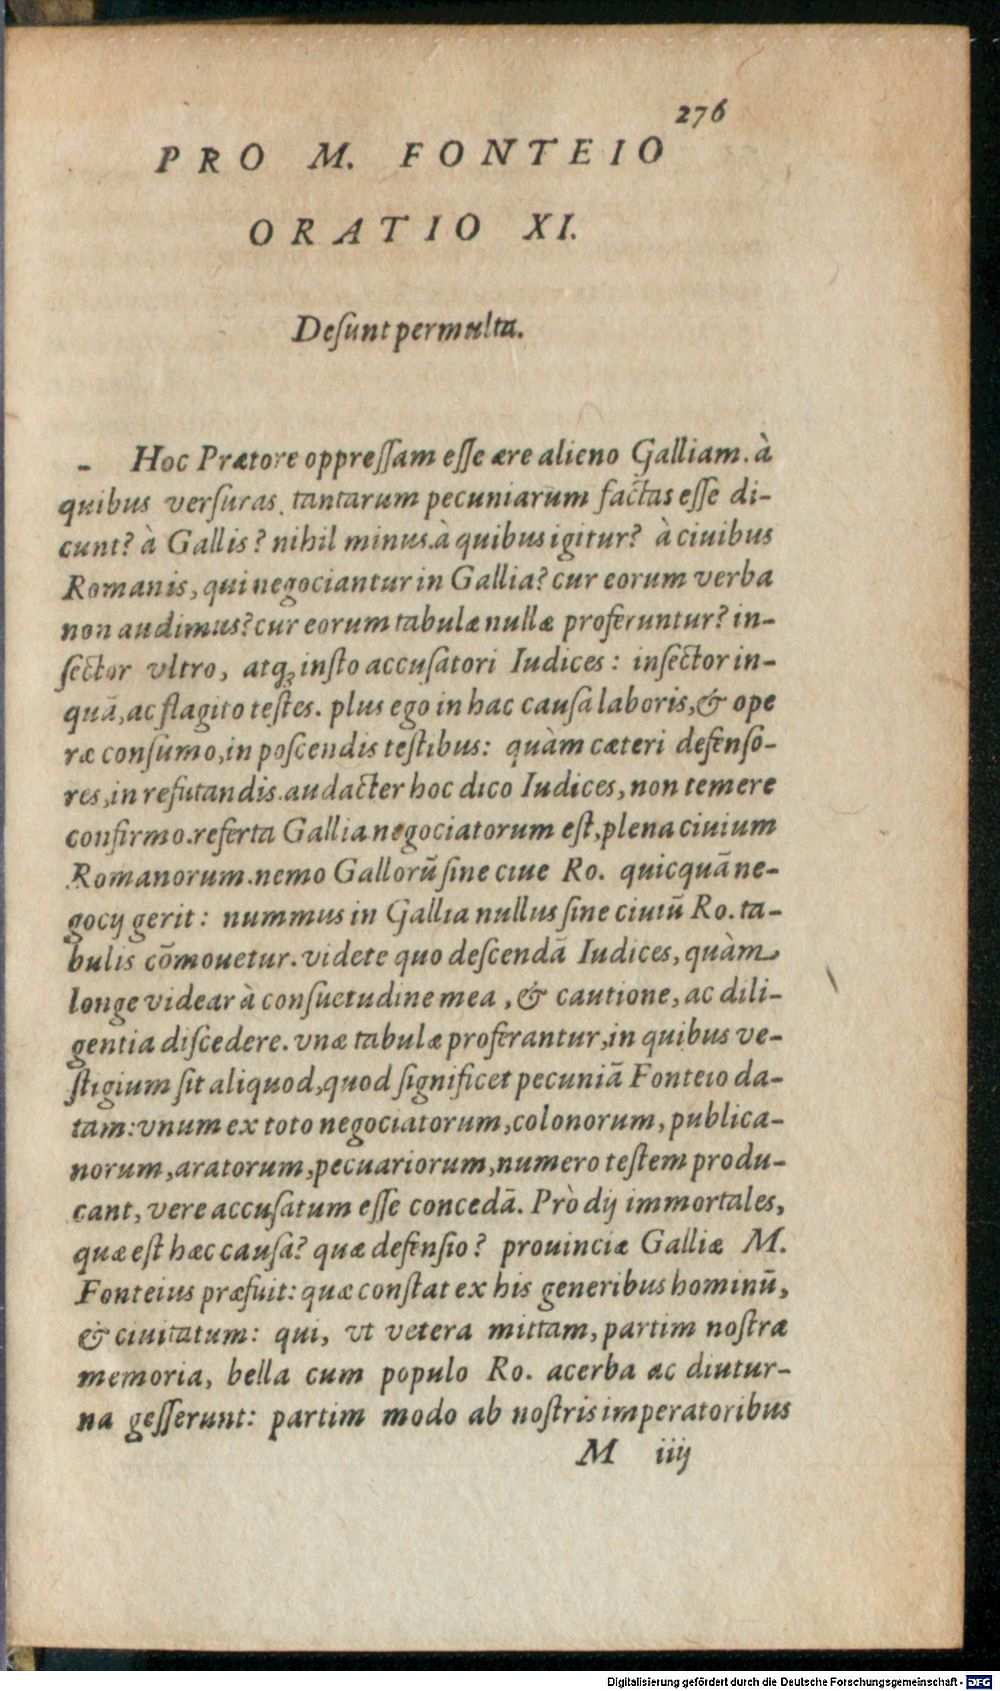 276
PRO M. FONTEIO
ORATIO XI.
Deſunt permulta.
- Hoc Prætore oppreſſam eſſe ære alieno Galliam. à
quibus verſuras tantarum pecuniarum factas eſſe di-
cunt? à Gallis? nihil minus. à quibus igitur? à ciuibus
Romanis, qui negociantur in Gallia? cur eorum verba
non audimus? cur eorum tabulæ nullæ proferuntur? in-
ſector vltro, atq; inſto accuſatori Iudices: inſector in-
quā, ac flagito teſtes. plus ego in hac cauſa laboris, & ope
ræ conſumo, in poſcendis teſtibus: quàm cæteri defenſo-
res, in refutandis. audacter hoc dico Iudices, non temere
confirmo. referta Gallia negociatorum eſt, plena ciuium
Romanorum. nemo Gallorū ſine ciue Ro. quicquā ne-
gocij gerit: nummus in Gallia nullus ſine ciuiū Ro. ta-
bulis cōmouetur. videte quo deſcendā Iudices, quàm
longe videar à conſuetudine mea, & cautione, ac dili-
gentia diſcedere. vnæ tabulæ proferantur, in quibus ve-
ſtigium ſit aliquod, quod ſignificet pecuniā Fonteio da-
tam: vnum ex toto negociatorum, colonorum, publica-
norum, aratorum, pecuariorum, numero teſtem produ-
cant, vere accuſatum eſſe concedā. Prò dij immortales,
quæ eſt hæc cauſa? quæ defenſio? prouinciæ Galliæ M.
Fonteius præfuit: quæ conſtat ex his generibus hominū,
& ciuitatum: qui, vt vetera mittam, partim noſtra
memoria, bella cum populo Ro. acerba ac diutur-
na geſſerunt: partim modo ab noſtris imperatoribus
M iiij
Digitalisierung gefördert durch die Deutsche Forschungsgemeinschaft - DFG